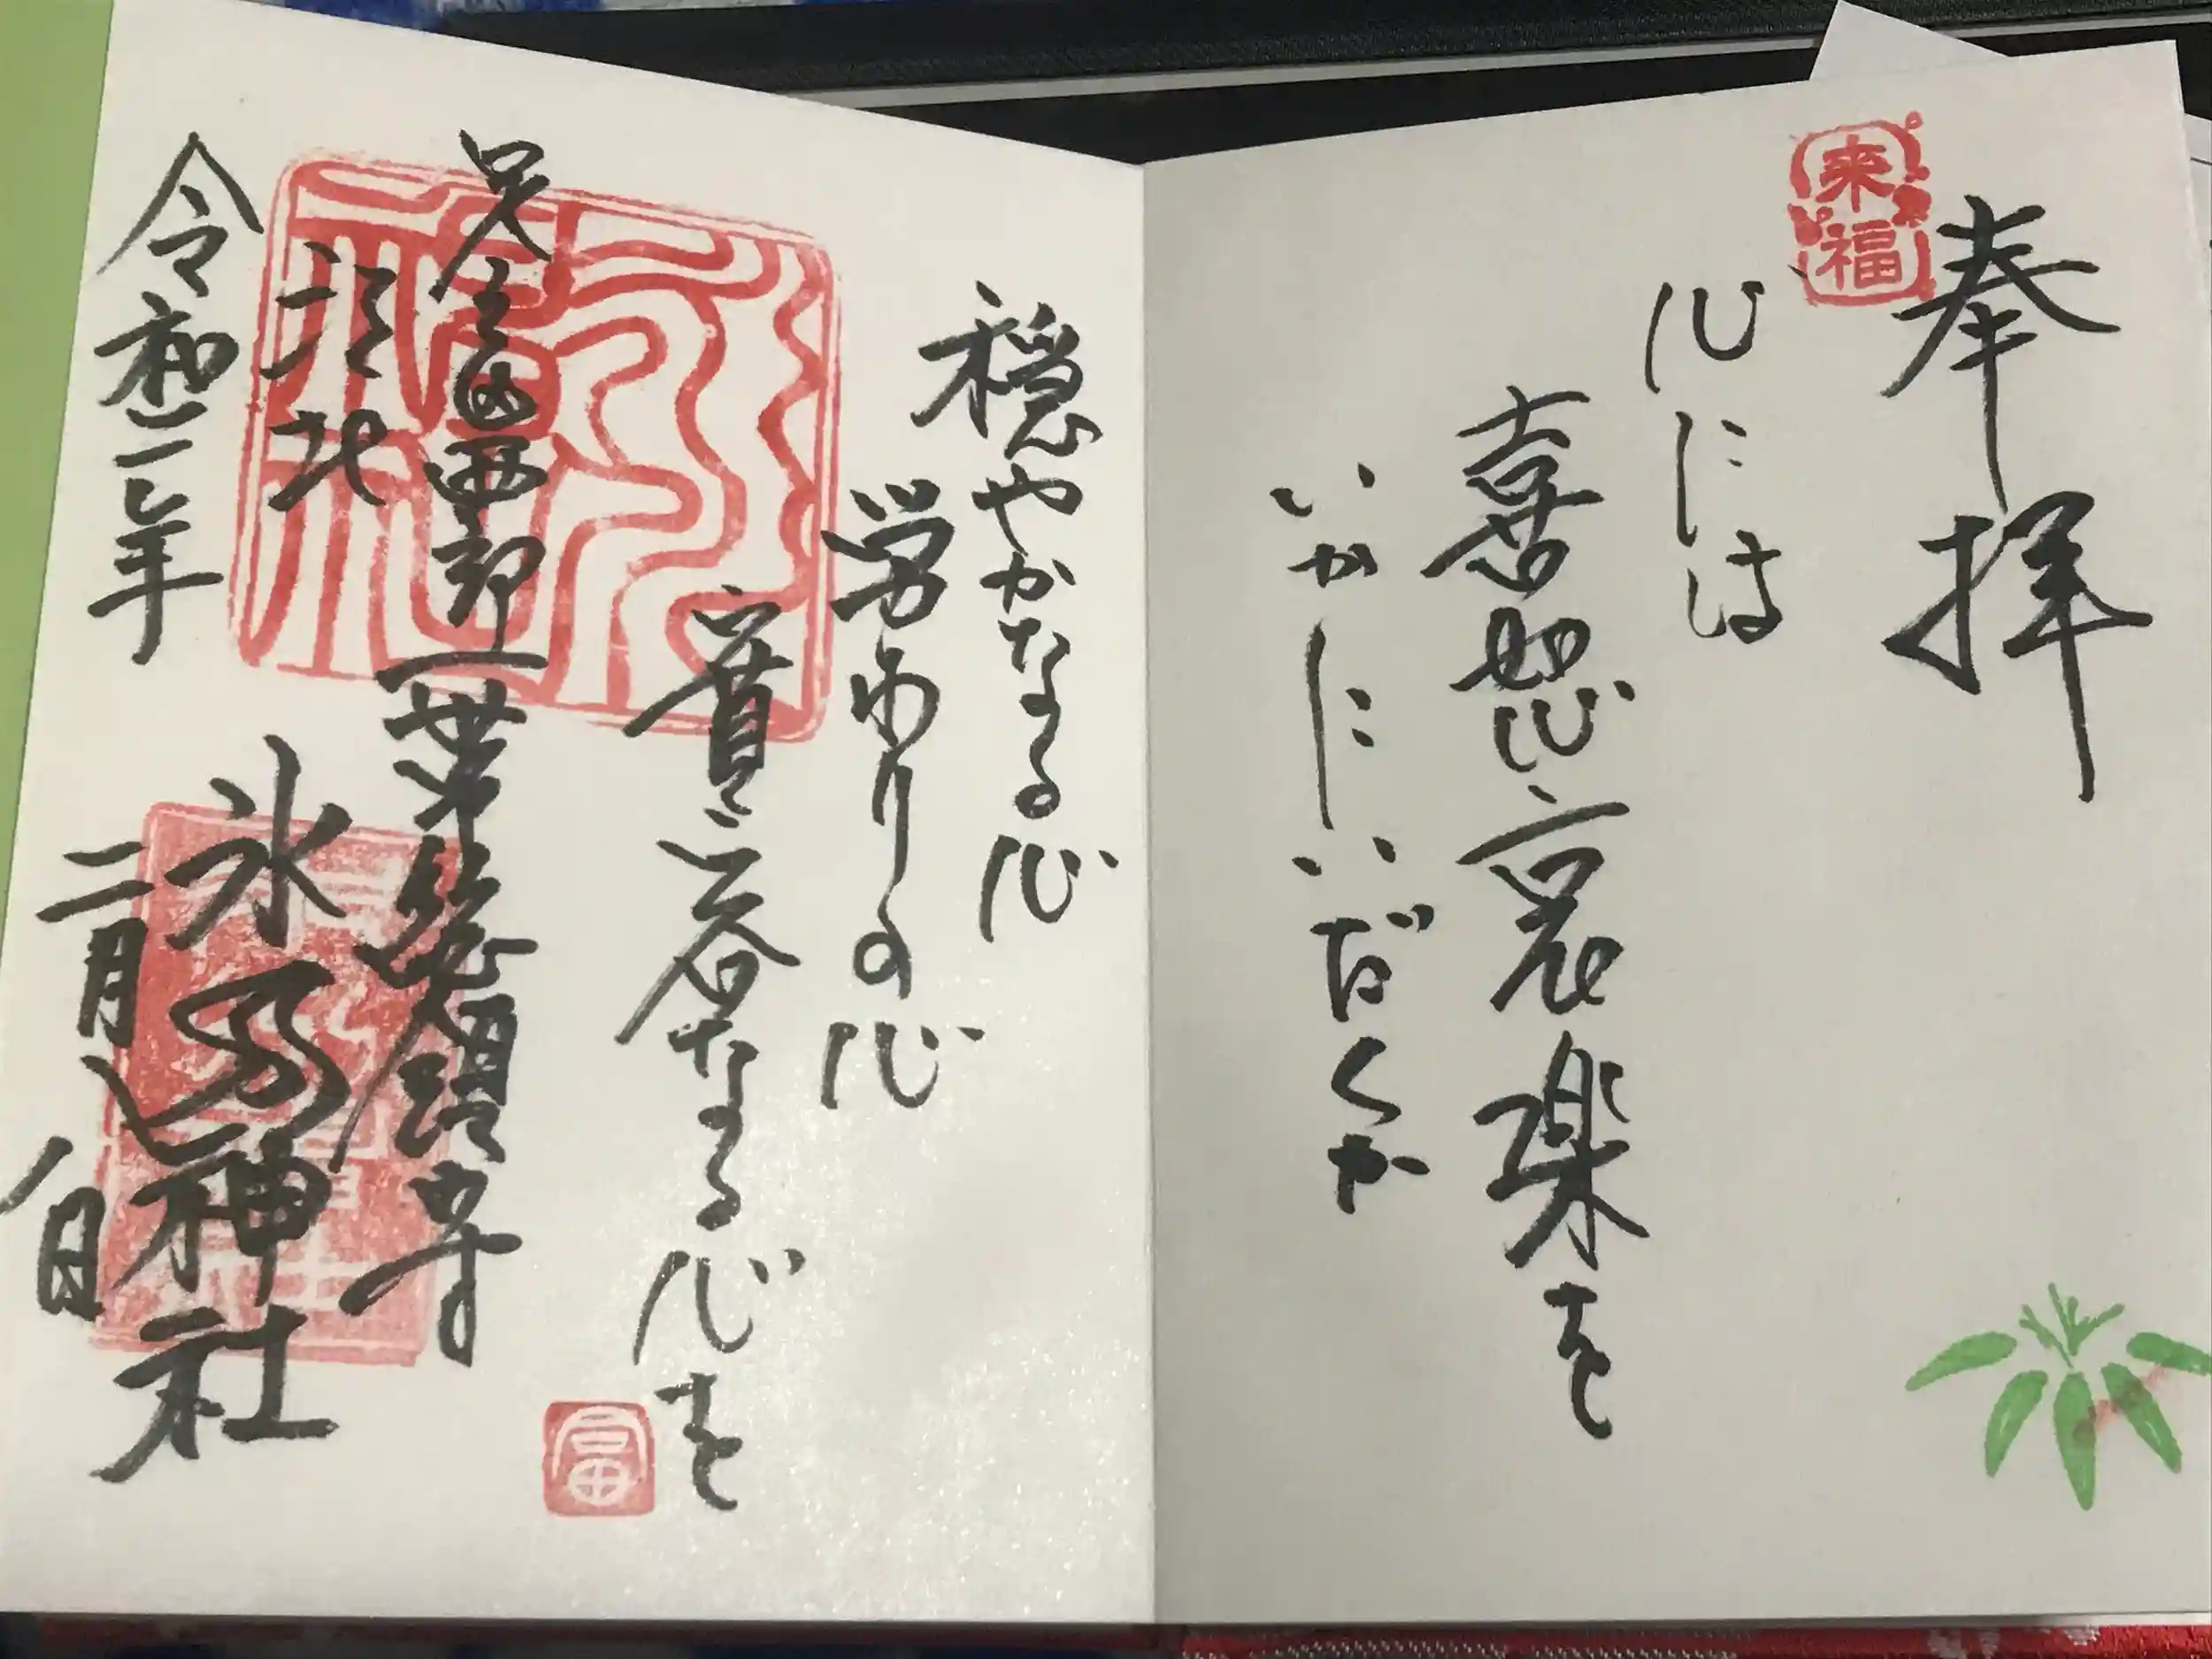 奉拝
来福
心には
喜怒哀楽を
いかにいだくか
穏やかなる心
労わりの心
寛容なる心を
富
総鎮守
江北
氷川神社
令和二年
二月
日